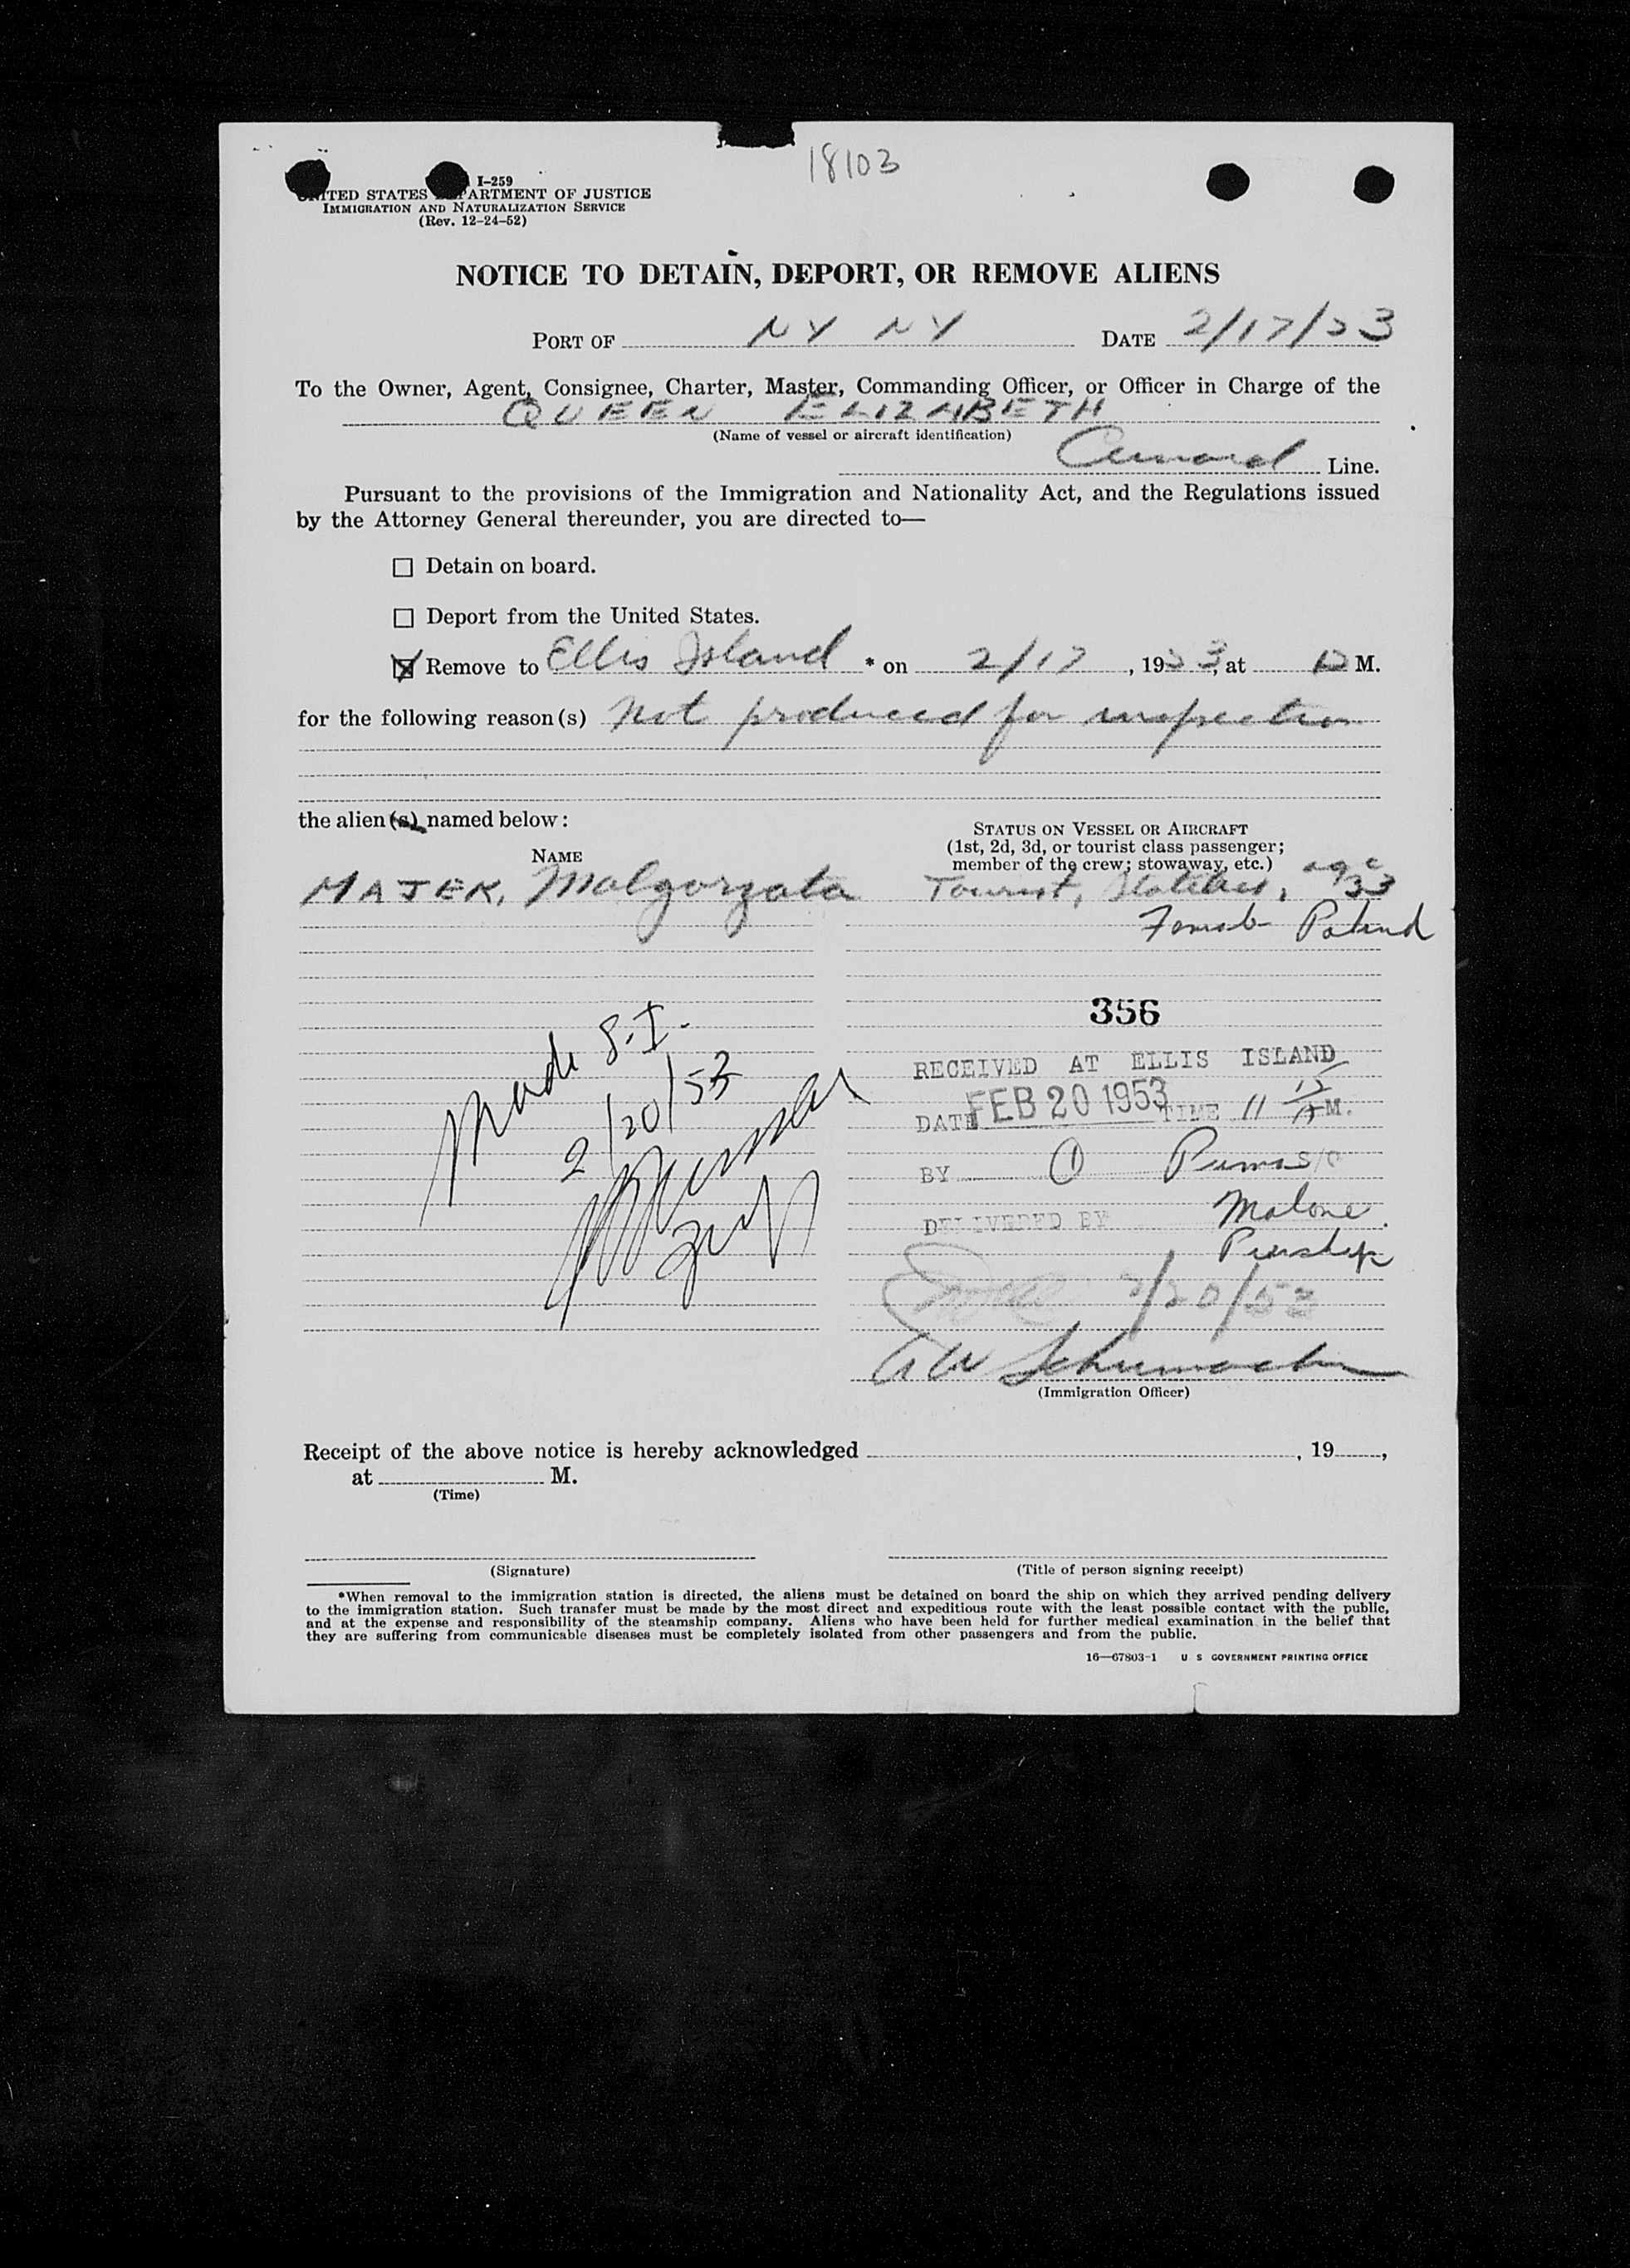 18103
I-259
UNITED STATES DEPARTMENT OF JUSTICE
IMMIGRATION AND NATURALIZATION SERVICE
(Rev. 12-24-52)
NOTICE TO DETAIN, DEPORT, OR REMOVE ALIENS
PORT OF NY NY DATE 2/17/53
To the Owner, Agent, Consignee, Charter, Master, Commanding Officer, or Officer in Charge of the
QUEEN ELIZABETH
(Name of vessel or aircraft identification)
Cunard Line.
Pursuant to the provisions of the Immigration and Nationality Act, and the Regulations issued
by the Attorney General thereunder, you are directed to—
Detain on board.
Deport from the United States.
Remove to Ellis Island * on 2/17, 1953, at M.
for the following reason(s) Not produced for inspection
the alien(s) named below:
STATUS ON VESSEL OR AIRCRAFT
(1st, 2d, 3d, or tourist class passenger;
member of the crew; stowaway, etc.)
NAME
MAJEK, Malgorzata Tourist, age 33
Female Poland
356
Made S.I.
2/20/53
RECEIVED AT ELLIS ISLAND
DATE FEB 20 1953 TIME 11 15 AM.
BY 1
DELIVERED BY Malone
2/20/53
A W Schumacher
(Immigration Officer)
Receipt of the above notice is hereby acknowledged , 19 ,
at M.
(Time)
(Signature) (Title of person signing receipt)
*When removal to the immigration station is directed, the aliens must be detained on board the ship on which they arrived pending delivery
to the immigration station. Such transfer must be made by the most direct and expeditious route with the least possible contact with the public,
and at the expense and responsibility of the steamship company. Aliens who have been held for further medical examination in the belief that
they are suffering from communicable diseases must be completely isolated from other passengers and from the public.
16—67803-1 U S GOVERNMENT PRINTING OFFICE